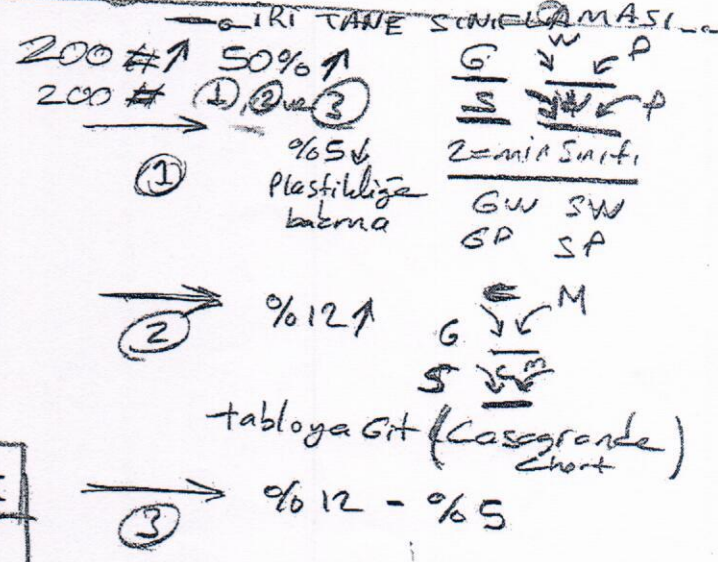 İRİ TANE SINIFLAMASI
200 #↑ 50%↑
200 # ①, ② ve ③
G W P
S W P
① %5↓
Plastikliğe
bakma
2=min Sınıfı
GW SW
GP SP
② %12↑
G C M
S C M
tabloya Git (Casagrande
Chart)
③ %12 - %5